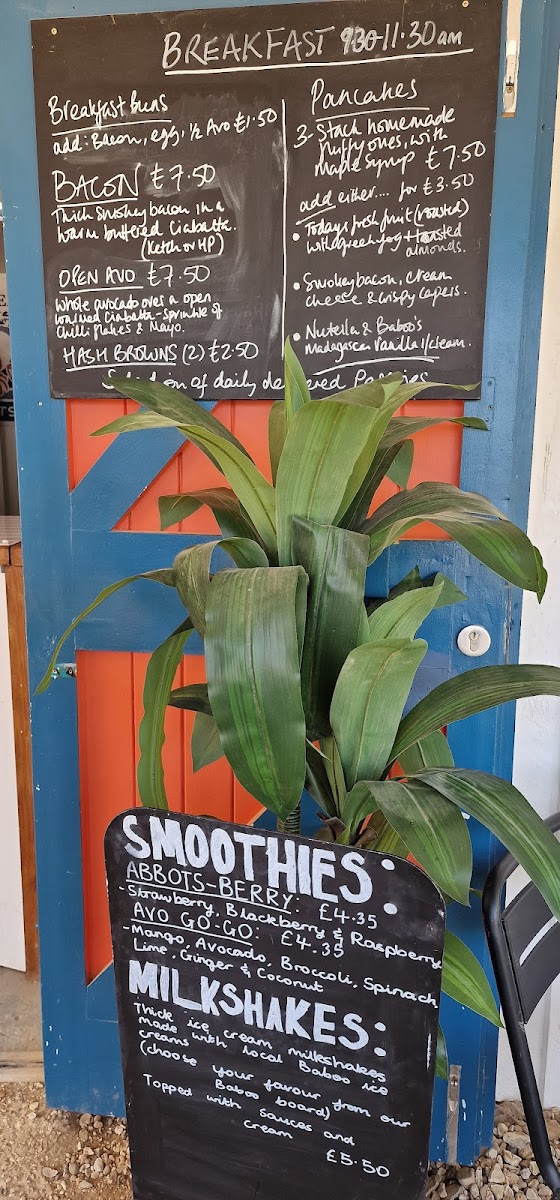 BREAKFAST 930-11.30am
Breakfast buns
add: Bacon, egg, 1/2 Avo £1.50
BACON £7.50
Thick smokey bacon in a
warm buttered Ciabatta.
(Ketch or HP)
OPEN AVO £7.50
Whole avocado over a open
toasted ciabatta - sprinkle of
Chilli flakes & Mayo.
HASH BROWNS (2) £2.50
Pancakes
3-Stack homemade
fluffy ones, with
maple syrup £7.50
add either.... for £3.50
• Todays fresh fruit (roasted)
with greek yog + toasted
almonds.
• Smokey bacon, cream
cheese & crispy capers.
• Nutella & Baboo's
Madagascan Vanilla 1/cream.
Selection of daily delivered Pastries
SMOOTHIES:
ABBOTS-BERRY: £4.35
-Strawberry, Blackberry & Raspberry
AVO GO-GO: £4.35
-Mango, Avocado, Broccoli, Spinach
Lime, Ginger & Coconut
MILKSHAKES:
Thick ice cream milkshakes
made with local Baboo ice
creams
(choose your favour from our
Baboo board)
Topped with sauces and
cream
£5.50